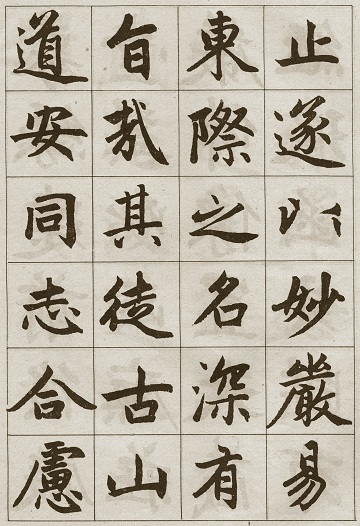 止遂以妙嚴易
東際之名深有
旨哉其徒古山
道安同志合慮